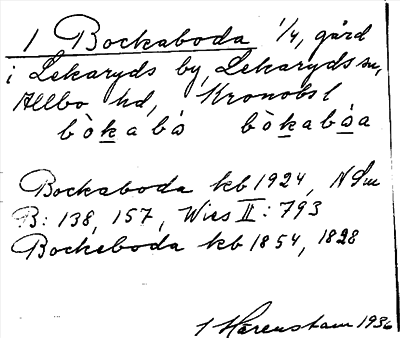 1 Bockaboda 1/4, gård
i Lekaryds by, Lekaryds sn,
Allbo hd, Kronobs l
bò̀kabó bò̀kabósa
Bockaboda kb 1924, N Sm
B: 138, 157, Wies II: 793
Bockeboda kb 1854, 1828
J Harenstam 1936